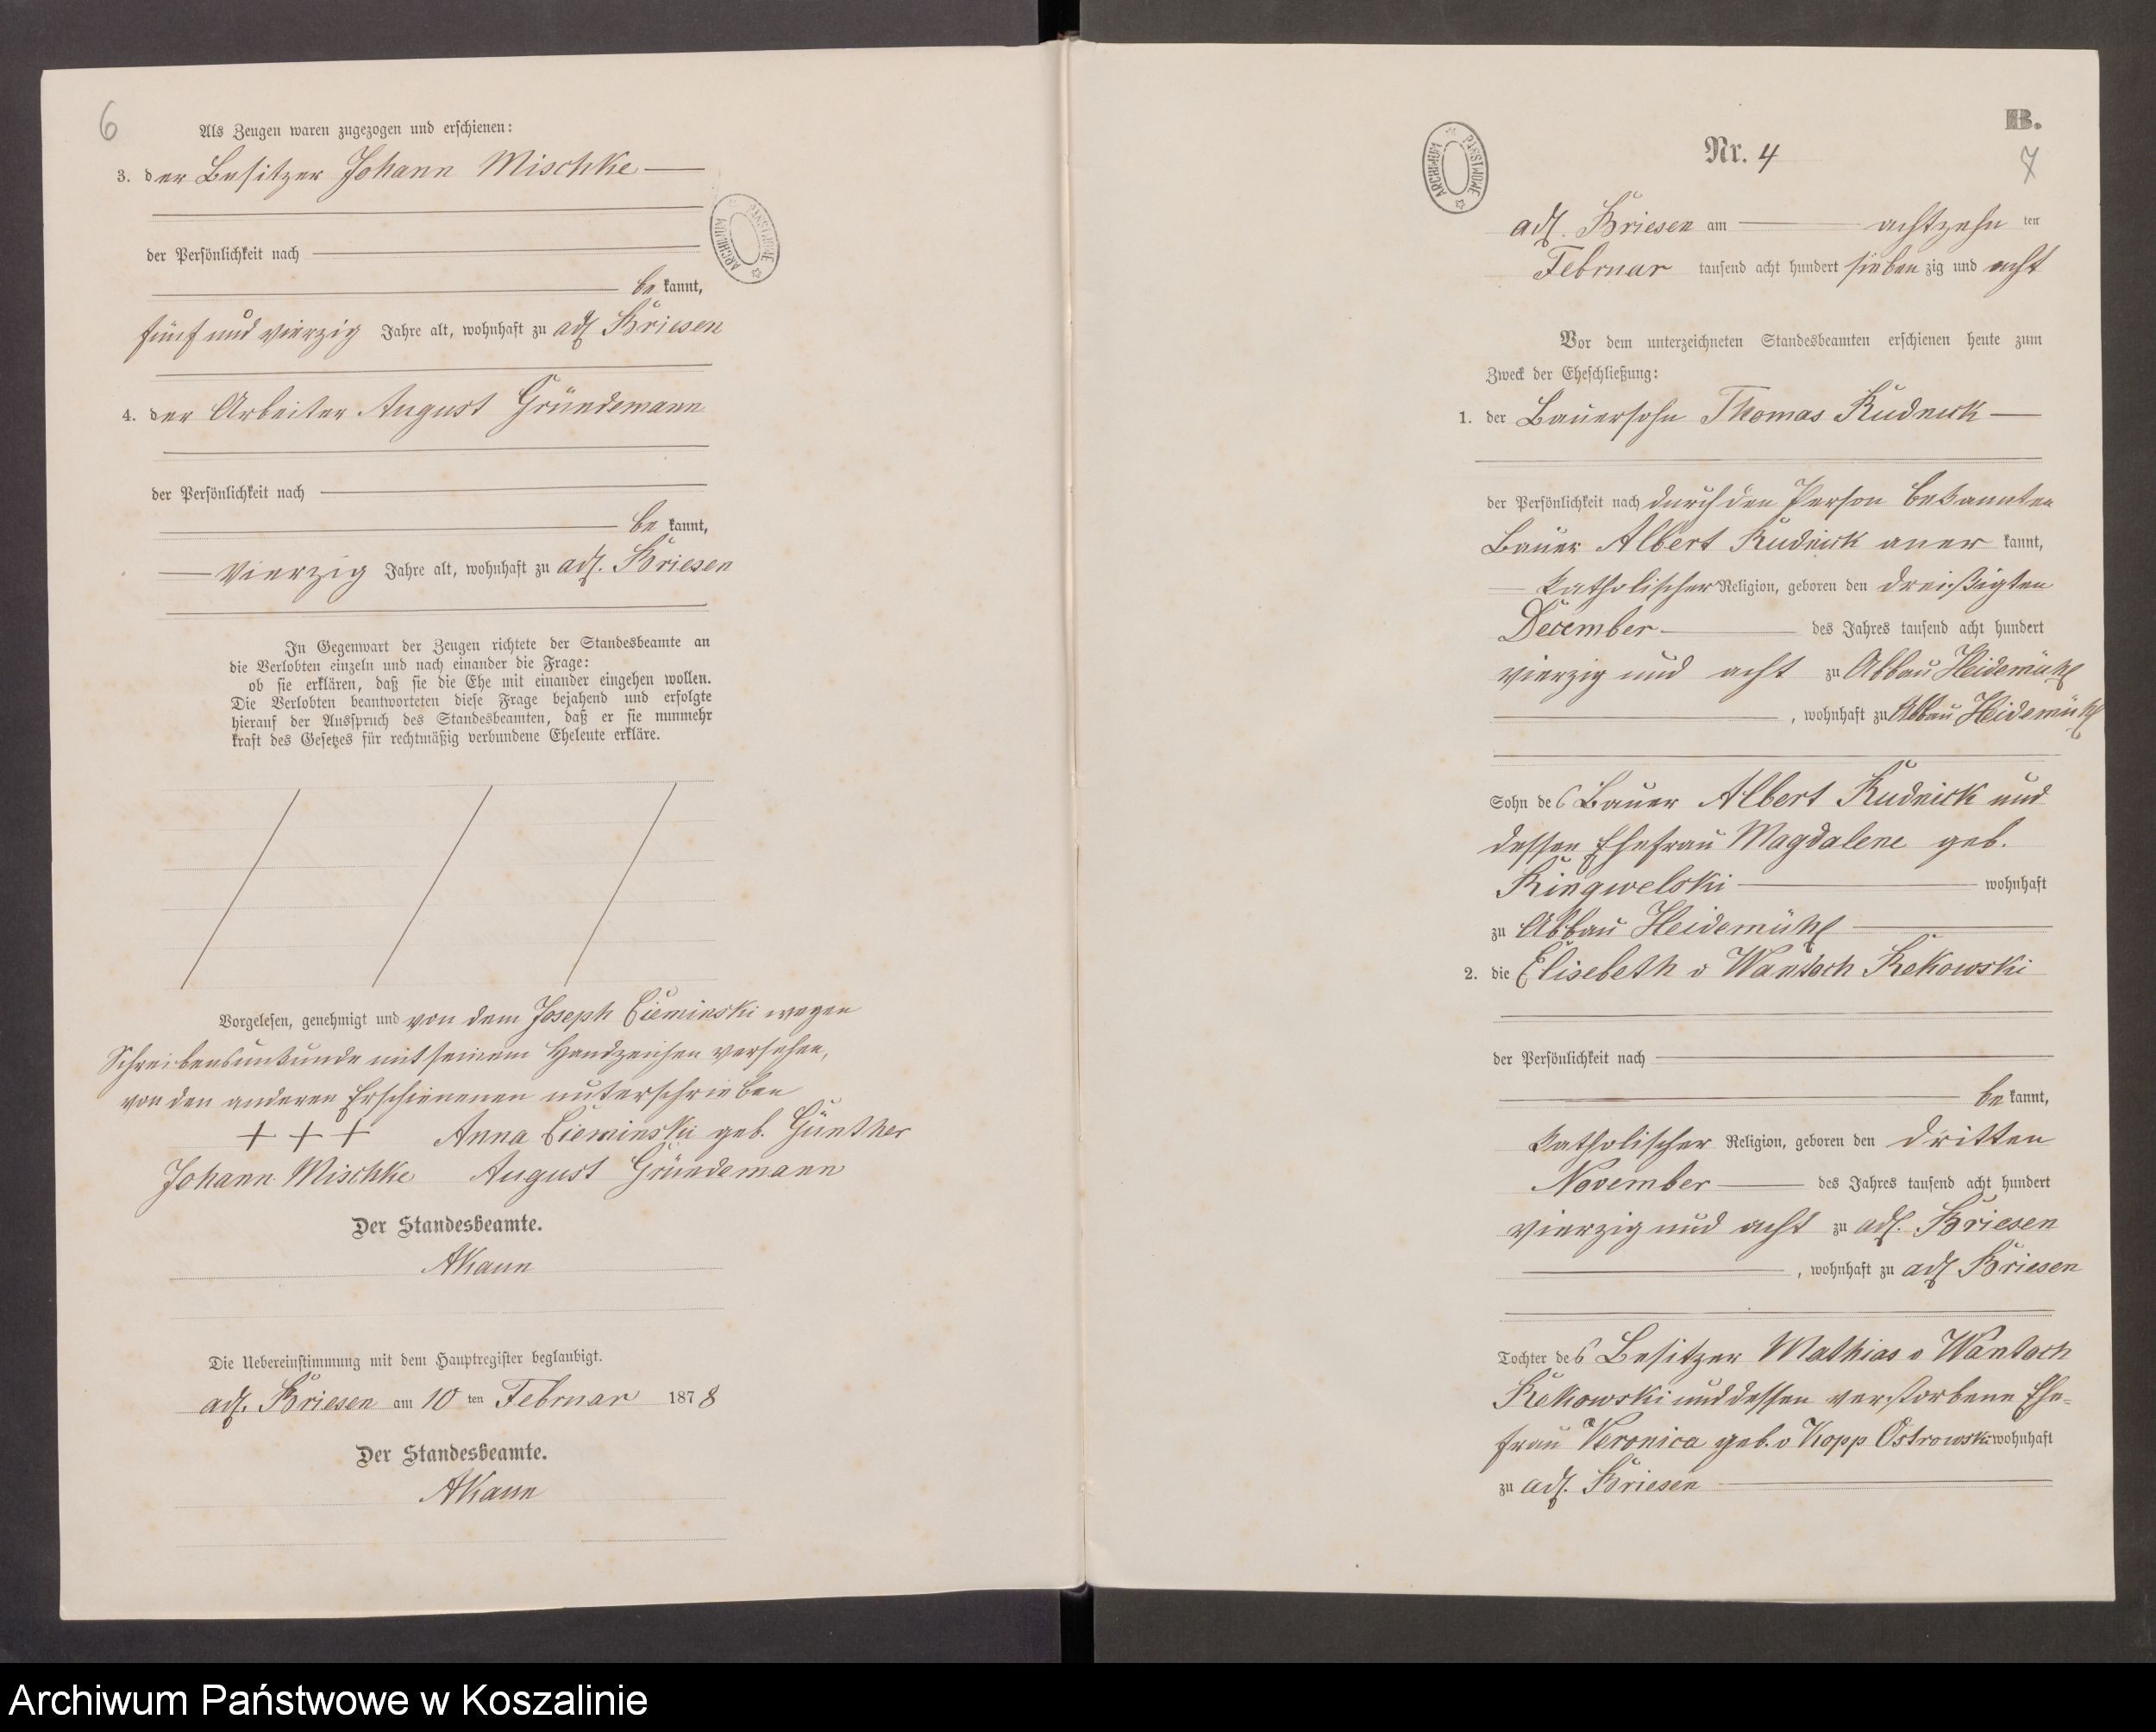 6
Als Zeugen waren zugezogen und erschienen:
3. der Besitzer Johann Mischke
der Persönlichkeit nach
be kannt,
fünf und vierzig Jahre alt, wohnhaft zu adl Briesen
4. der Arbeiter August Gründemann
der Persönlichkeit nach
be kannt,
vierzig Jahre alt, wohnhaft zu adl. Briesen
In Gegenwart der Zeugen richtete der Standesbeamte an
die Verlobten einzeln und nach einander die Frage:
ob sie erklären, daß sie die Ehe mit einander eingehen wollen.
Die Verlobten beantworteten diese Frage bejahend und erfolgte
hierauf der Ausspruch des Standesbeamten, daß er sie nunmehr
kraft des Gesetzes für rechtmäßig verbundene Eheleute erkläre.
Vorgelesen, genehmigt und von dem Joseph Cieminski wegen
Schreibensunkunde mit seinem Handzeichen versehen,
von den anderen Erschienenen unterschrieben
+ + + Anna Cieminski geb. Günther
Johann Mischke August Gründemann
Der Standesbeamte.
Die Uebereinstimmung mit dem Hauptregister beglaubigt.
adl. Briesen am 10 ten Februar 1878
Der Standesbeamte.
ARCHIWUM PAŃSTWOWE
B.
Nr. 4
7
ARCHIWUM PAŃSTWOWE
adl. Briesen am achtzehn ten
Februar tausend acht hundert sieben zig und acht
Vor dem unterzeichneten Standesbeamten erschienen heute zum
Zweck der Eheschließung:
1. der Bauersohn Thomas Rudnick
der Persönlichkeit nach durch den Person bekannten
Bauer Albert Rudnick aner kannt,
katholischer Religion, geboren den dreißigten
December des Jahres tausend acht hundert
vierzig und acht zu Abbau Heidemühl
, wohnhaft zu Abbau Heidemühl
Sohn des Bauer Albert Rudnick und
dessen Ehefrau Magdalene geb.
Ringwelski wohnhaft
zu Abbau Heidemühl
2. die Elisebeth v Wantoch Rekowski
der Persönlichkeit nach
be kannt,
katholischer Religion, geboren den dritten
November des Jahres tausend acht hundert
vierzig und acht zu adl. Briesen
, wohnhaft zu adl Briesen
Tochter des Besitzer Mathias v Wantoch
Rekowski und dessen verstorbene Ehe=
frau Veronica geb. v Kopp Ostrowski wohnhaft
zu adl. Briesen
Archiwum Państwowe w Koszalinie